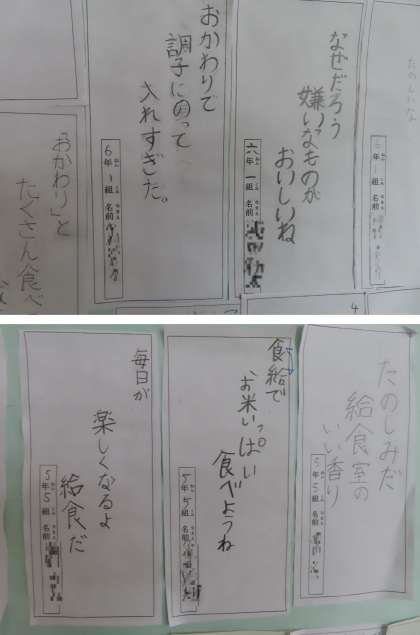 たのしいな
なぜだろう
嫌いなものが
おいしいね
六年 一組 名前
おかわりで
調子にのって
入れすぎた。
6年 1組 名前
「おかわり」と
たくさん食べ
4
たのしみだ
給食室の
いい香り
5年 5組 名前
食給で
お米いっぱい
食べようね
5年 5組 名前
毎日が
楽しくなるよ
給食だ
5年 5組 名前